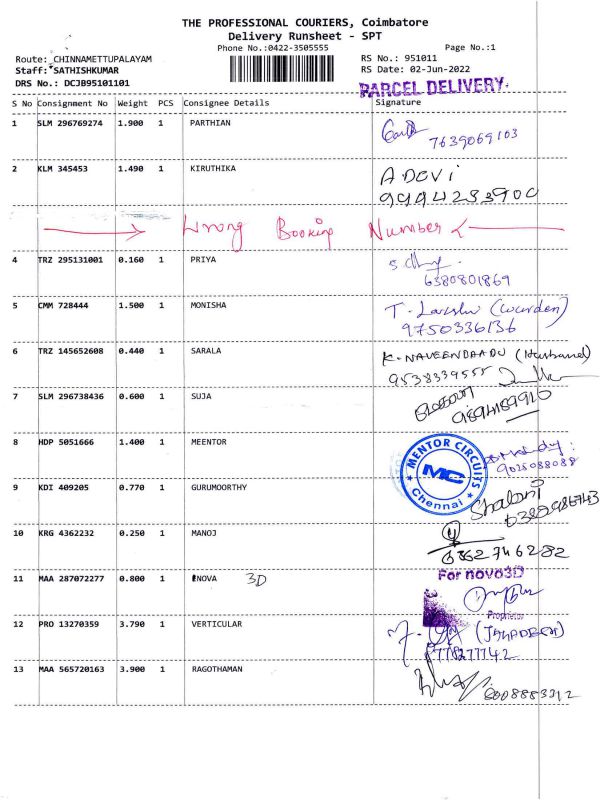 THE PROFESSIONAL COURIERS, Coimbatore
Delivery Runsheet - SPT
Phone No.:0422-3505555 Page No.:1
Route: CHINNAMETTUPALAYAM RS No.: 951011
Staff: SATHISHKUMAR RS Date: 02-Jun-2022
DRS No.: DCJB95101101
PARCEL DELIVERY.
S No Consignment No Weight PCS Consignee Details Signature
1 SLM 296769274 1.900 1 PARTHIAN
7639069103
2 KLM 345453 1.490 1 KIRUTHIKA A DEVI
9994233900
Wrong Booking Number
4 TRZ 295131001 0.160 1 PRIYA
6380801869
5 CMM 728444 1.500 1 MONISHA T. (warden)
9750336136
6 TRZ 145652608 0.440 1 SARALA K. (Husband)
9538339555
7 SLM 296738436 0.600 1 SUJA
8 HDP 5051666 1.400 1 MEENTOR
MENTOR CIRCUITS
MC
Chennai
9025088088
9 KDI 409205 0.770 1 GURUMOORTHY Shalani
10 KRG 4362232 0.250 1 MANOJ
6362746282
11 MAA 287072277 0.800 1 ENOVA 3D For novo3D
Proprietor
12 PRO 13270359 3.790 1 VERTICULAR
13 MAA 565720163 3.900 1 RAGOTHAMAN